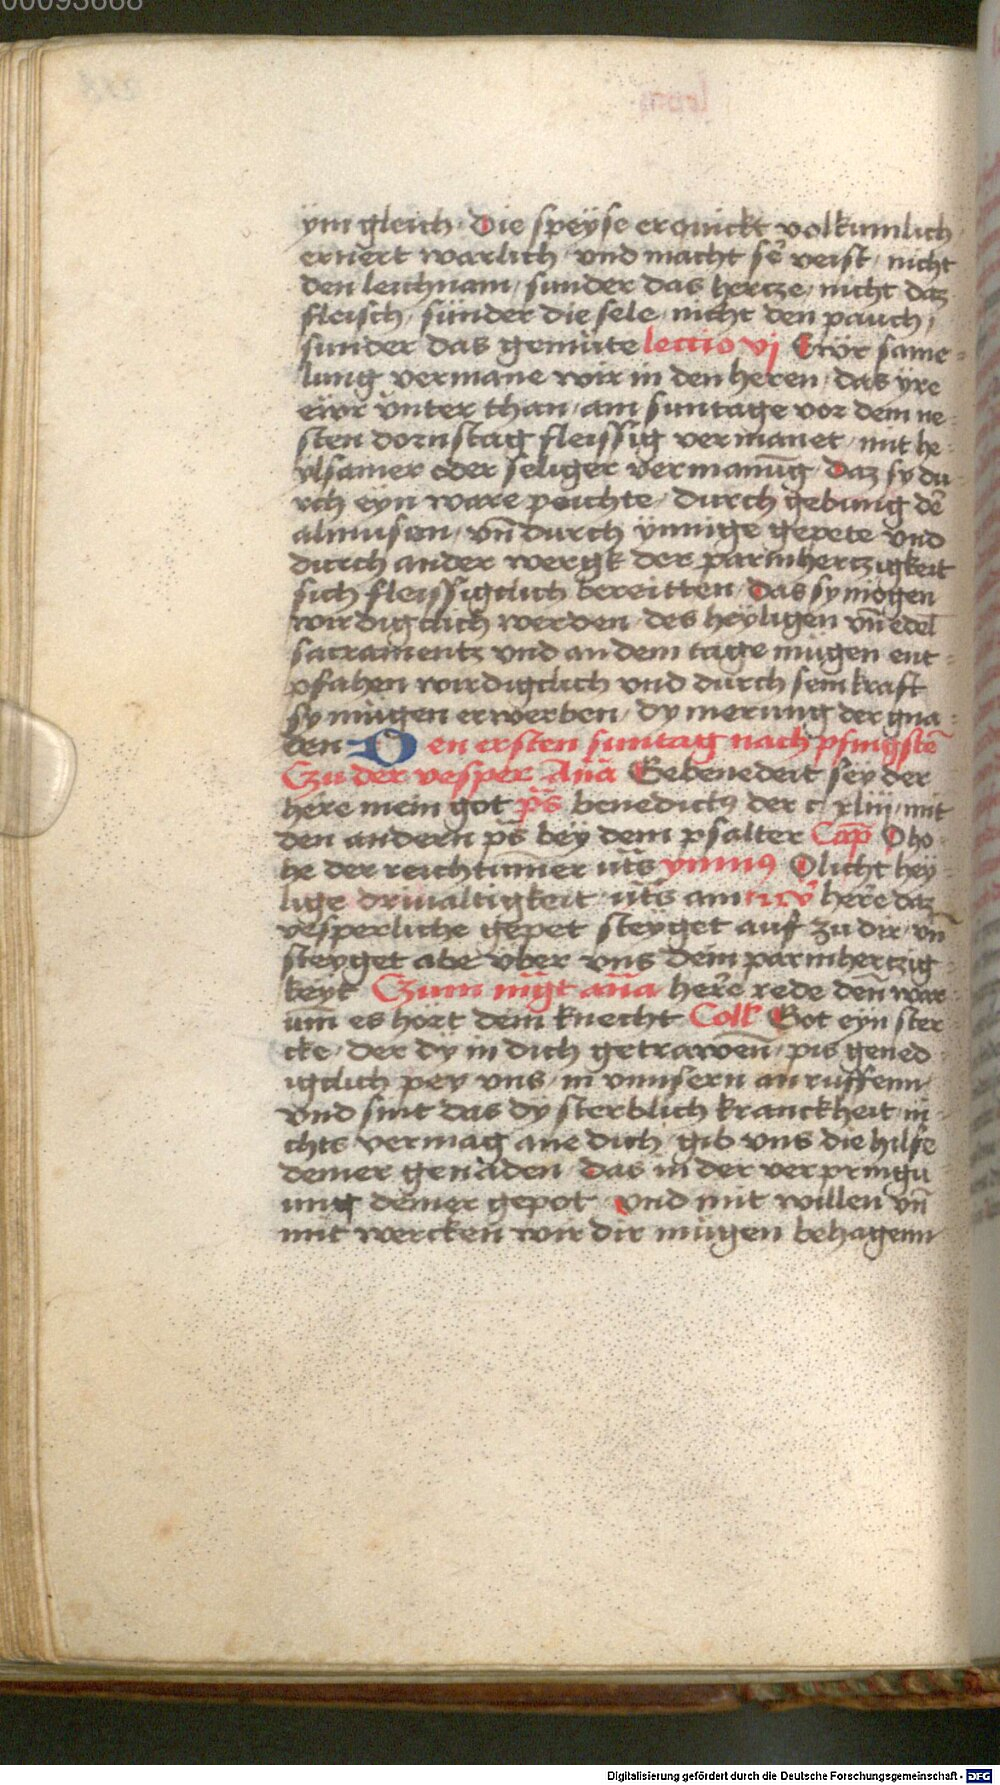 00093668
ym gleich · Die speyse erquickt volkumlich
ernert warlich / vnd macht sẽ veist / nicht
den leichnam / sunder das hercze / nicht daz
fleisch / sunder die sele / nicht den pauch /
sunder das gemüte lectio vj Ewr same-
lung vermane wir in den heren / das yre
ewr vnter than / am suntage vor dem ne-
sten dornstag fleissig vermanet / mit he-
ylsamer oder seliger vermanũg Daz sy du-
rch eyn ware peichte / durch gebung dē
almusen / vñ durch ynnige gepete vnd
durch ander wergk der parmherczigkeit
sich fleissigclich bereitten / Das sy mogen
wirdigclich werden / des heyligen vñ edel
sacramentz vnd an dem tage mügen ent-
pfahen wirdigclich vnd durch sein kraft
sy mügen erwerben / dy merung der gna-
den Den ersten suntag nach pfingstē
Czu der vesper Añã Gebenedeit sey der
here mein got p̃s benedictus der c xliij / mit
den andern p̃s bey dem psalter Cap̃ O ho-
he der reichtum̃er ut̃s ymnus O licht hey-
lige driualtigkeit / ut̃s am here daz
vesperliche gepet steyget auf zu dir / vñ
steyget abe vber vns dein parmherczig-
keyt Czum mg̃t añã here rede den war-
um̃ es hört dein knecht Coll̃ Got eyn ster-
cke / der dy in dich getrawen̄ / pis gened-
igclich pey vns / in vnnsern an ruffenn /
vnd sint das dy sterblich kranckheit / ni-
chts vermag ane dich / gib vns die hilfe
deiner genaden / das in der verpringu-
ung deiner gepot / vnd mit willen vñ
mit wercken wir dir mügen behagenn
Digitalisierung gefördert durch die Deutsche Forschungsgemeinschaft - DFG